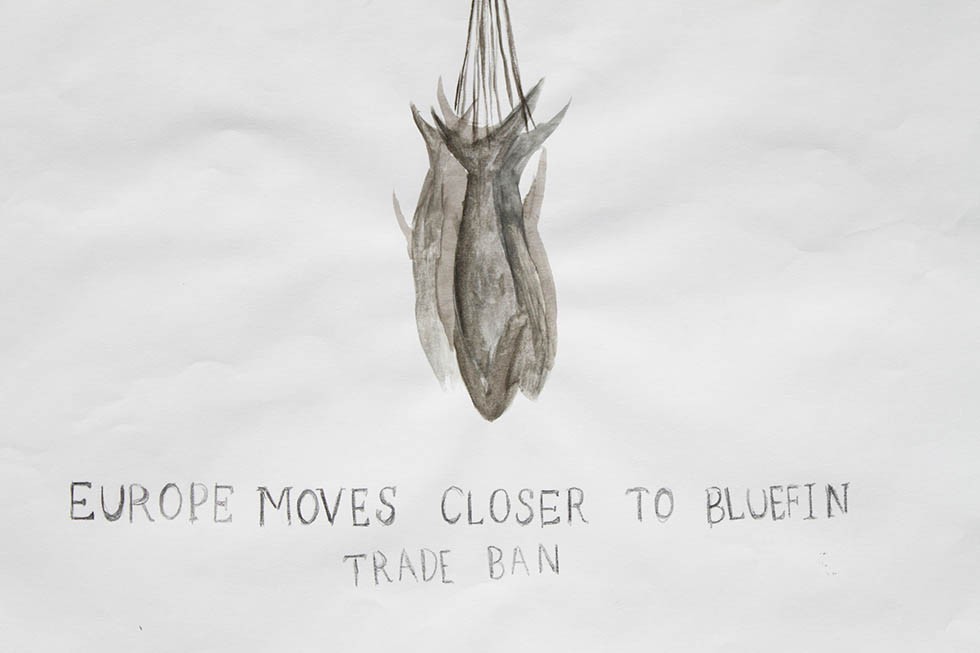 EUROPE MOVES CLOSER TO BLUEFIN
TRADE BAN